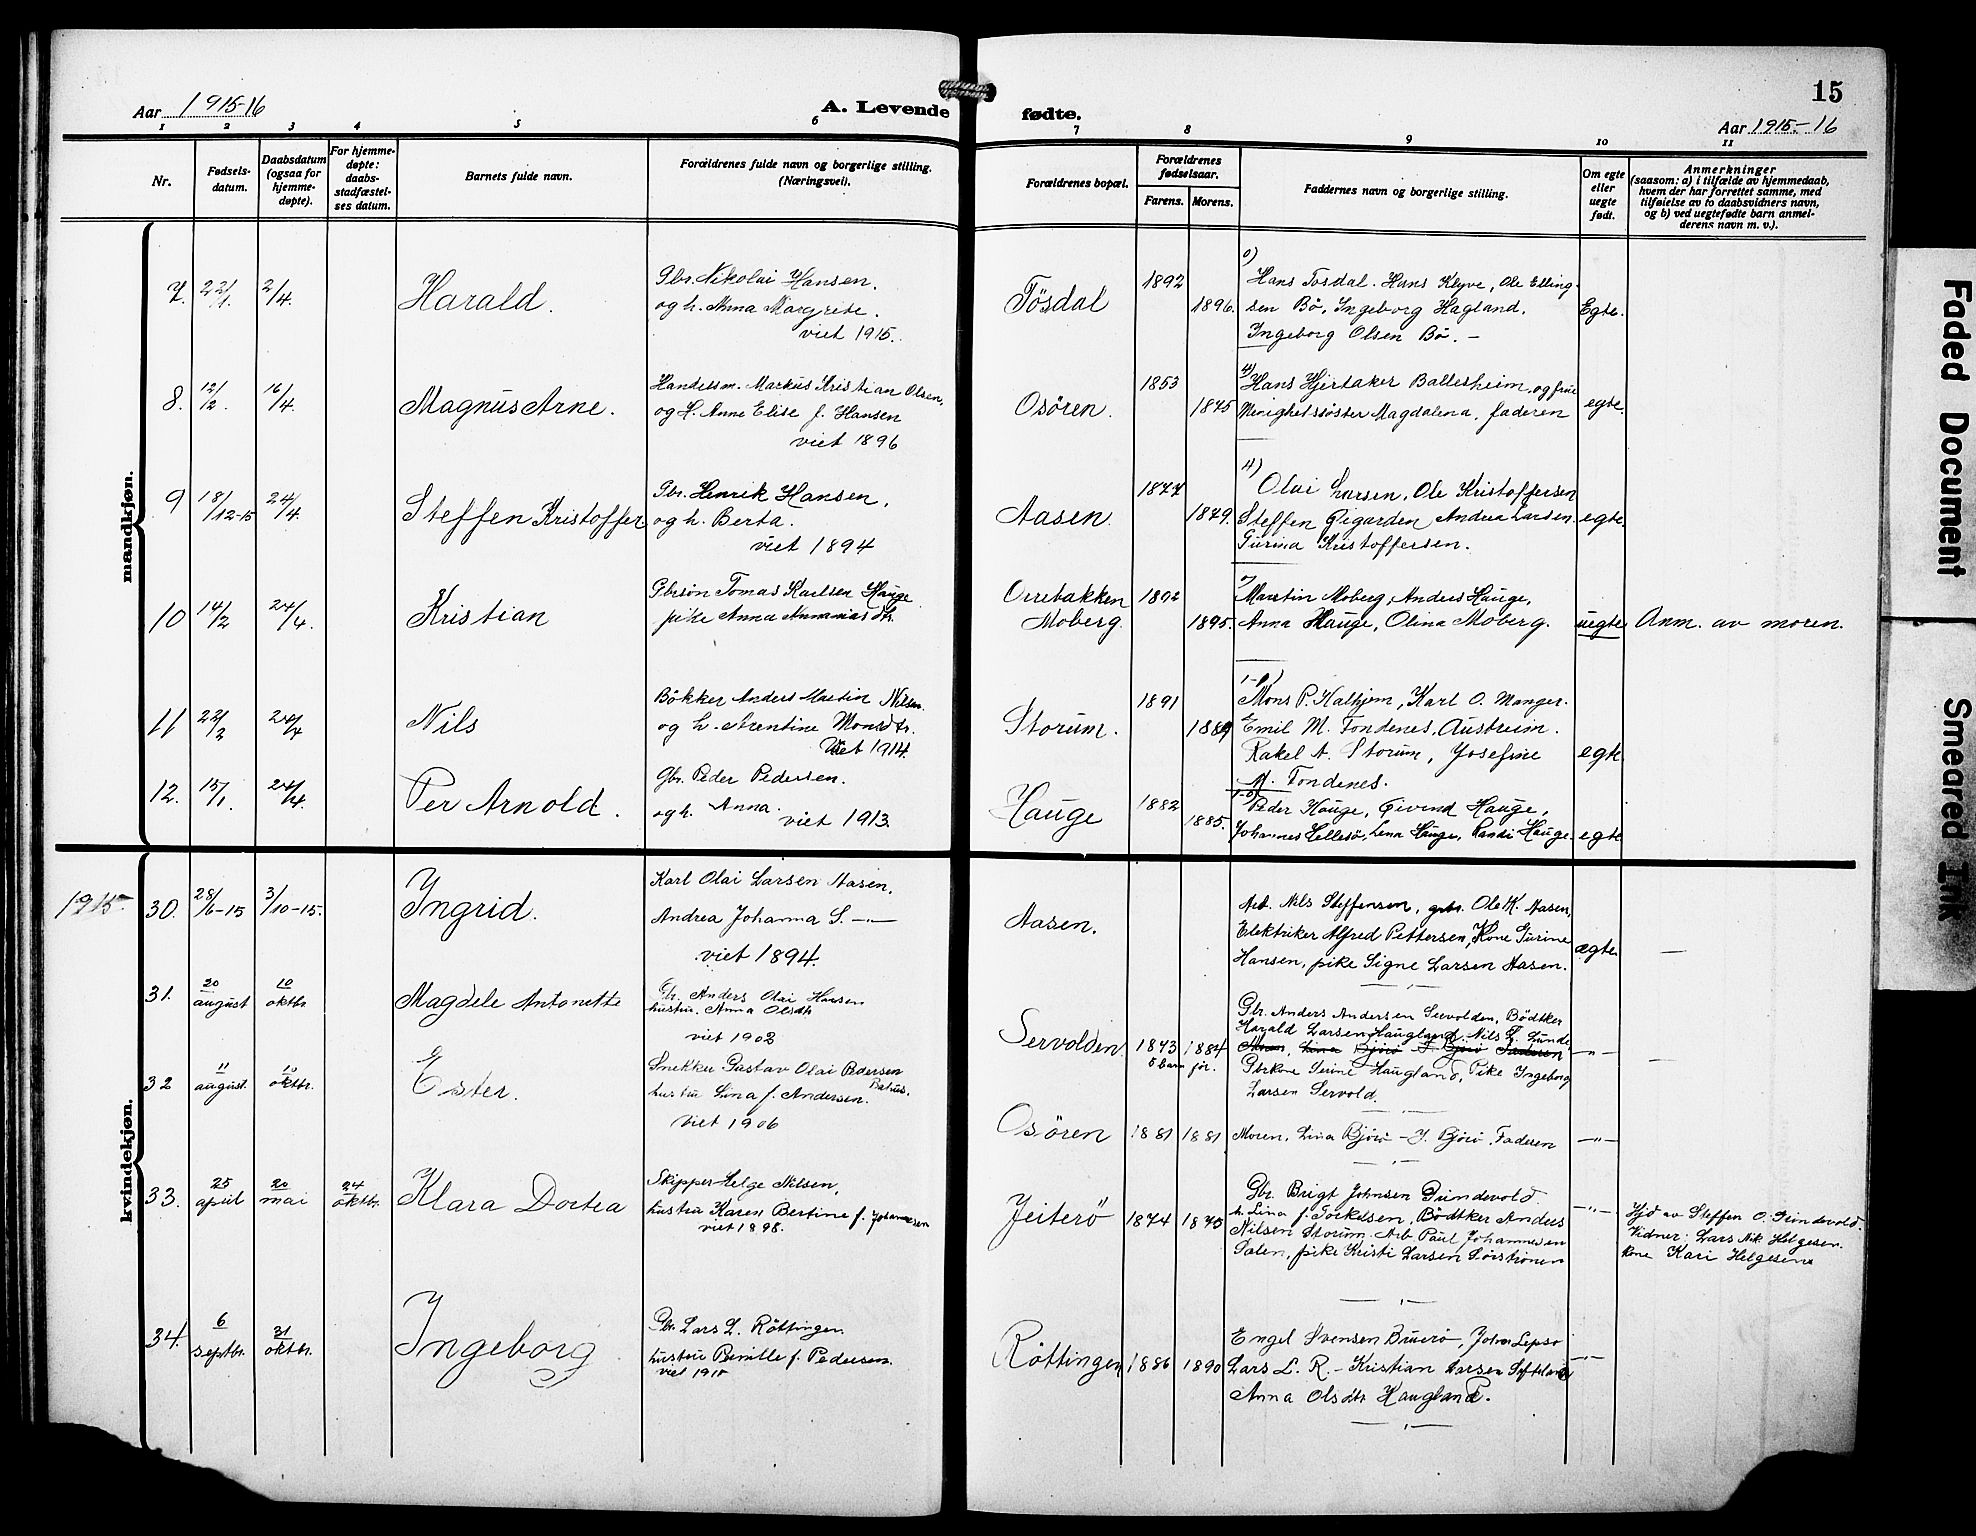 Aar 1915-16
A. Levende
fødte.
15
Aar 1915-16
1 2 3 4 5 6 7 8 9 10 11
Nr.
Fødsels-
datum.
Daabsdatum
(ogsaa for
hjemme-
døpte).
For hjemme-
døpte:
daabs-
stadfæstel-
ses datum.
Barnets fulde navn.
Forældrenes fulde navn og borgerlige stilling.
(Næringsvei).
Forældrenes bopæl.
Forældrenes
fødselsaar.
Farens. Morens.
Faddernes navn og borgerlige stilling.
Om egte
eller
uegte
født.
Anmerkninger
(saasom: a) i tilfælde av hjemmedaab,
hvem der har forrettet samme, med
tilføielse av to daabsvidners navn,
og b) ved uegtefødte barn anmel-
derens navn m. v.).
mandkjøn.
7. 22/1. 2/4. Harald.
Gbr. Nikolai Hansen.
og h. Anna Margrete.
viet 1915.
Tösdal 1892 1896.
Hans Tosdal. Hans Klyve, Ole Elling-
sen Bö, Ingeborg Hagland.
Ingeborg Olsen Bö. -
Egte.
8. 12/2. 16/4. Magnus Arne.
Handelsm. Markus Kristian Olsen,
og h. Anne Elise f. Hansen
viet 1896
Osören. 1853 1875
Hans Hjertaker Ballesheim, og frue
Menighetssöster Magdalena, faderen
egte.
9 18/12-15 24/4. Steffen Kristoffer
Gbr. Henrik Hansen,
og h. Berta.
viet 1894
Aasen. 1877 1879.
Olai Larsen, Ole Kristoffersen
Steffen Gigarden Andrea Larsen.
Gurina Kristoffersen.
egte.
10 14/2 24/4. Kristian
Gbrsön Tomas Karlsen Hauge
pike Anna Annanias dtr.
Orrebakken
Moberg. 1895.
Martin Moberg, Anders Hauge,
Anna Hauge, Olina Moberg.
uegte
Anm. av moren.
11 22/2 24/4 Nils
Bökker Anders Martin Nilsen.
og h. Arentine Monsdtr.
Viet 1914.
Storum. 1891 1889
Mons P. Halhjem, Karl O. Manger.
Emil M. Tondenes, Austreim.
Rakel A. Storum, Josefine
M. Tondenes.
egte
12. 15/1. 24/4. Per Arnold.
Gbr. Peder Pedersen.
og h. Anna.
viet 1913.
Hauge 1882 1885.
Peder Hauge, Eivind Hauge,
Johannes Hellesö, Lena Hauge, Randi Hauge.
egte
kvindekjøn.
1915. 30. 28/6-15 3/10-15. Ingrid.
Karl Olai Larsen Aasen.
Andrea Johanna S. -"-
viet 1894.
Aasen.
Arb. Nils Steffensen, gbr. Ole K. Aasen,
Elektriker Alfred Pettersen, Kone Gurine
Hansen, pike Signe Larsen Aasen.
ægte.
—
31. 20 august 10 oktbr Magdele Antonette
Gbr. Anders Olai Hansen
hustru. Anna Olsdtr
viet 1902
Servolden. 1873 1884
5 barn för.
Gbr. Anders Andersen Servolden, Bödtker
Harald Larsen Haugland. Nils L. Lunde
Gbrkone Serine Haugland, Pike Ingeborg
Larsen Servold.
-"-
—
32 11 august. 10 oktbr. Ester.
Snekker Gustav Olai Pedersen
hustru Lina f. Andersen.
Viet 1906
Osören 1881 1881
Moren, Lina Björö - J. Björö. Faderen
-"-
33. 25 april 20 mai 24 oktbr. Klara Dortea
Skipper Helge Nilsen,
hustru Karen Bertine f. Johannesen
viet 1898.
Jeiterö 1874 1875
Gbr. Brigt Johnsen Gundevold
h. Lina f. Torkelsen, Bödtker Anders
Nilsen Storum, Arb. Paul Johannesen
Dalen, pike Kristi Larsen
-"-
Hjd av Steffen O. Gundevold.
Vidner: Lars Nik. Helgesen.
kone Kari Helgesen
34. 6 septbr. 31 oktbr. Ingeborg
Gbr. Lars L. Röttingen
hustru Pernille f. Pedersen.
viet 1910
Röttingen 1886 1890
Engel Svensen Bruerö, John Lepsö
Lars L. R. - Kristian Larsen
Anna Olsdtr Haugland.
-"-
Faded Document
Smeared Ink